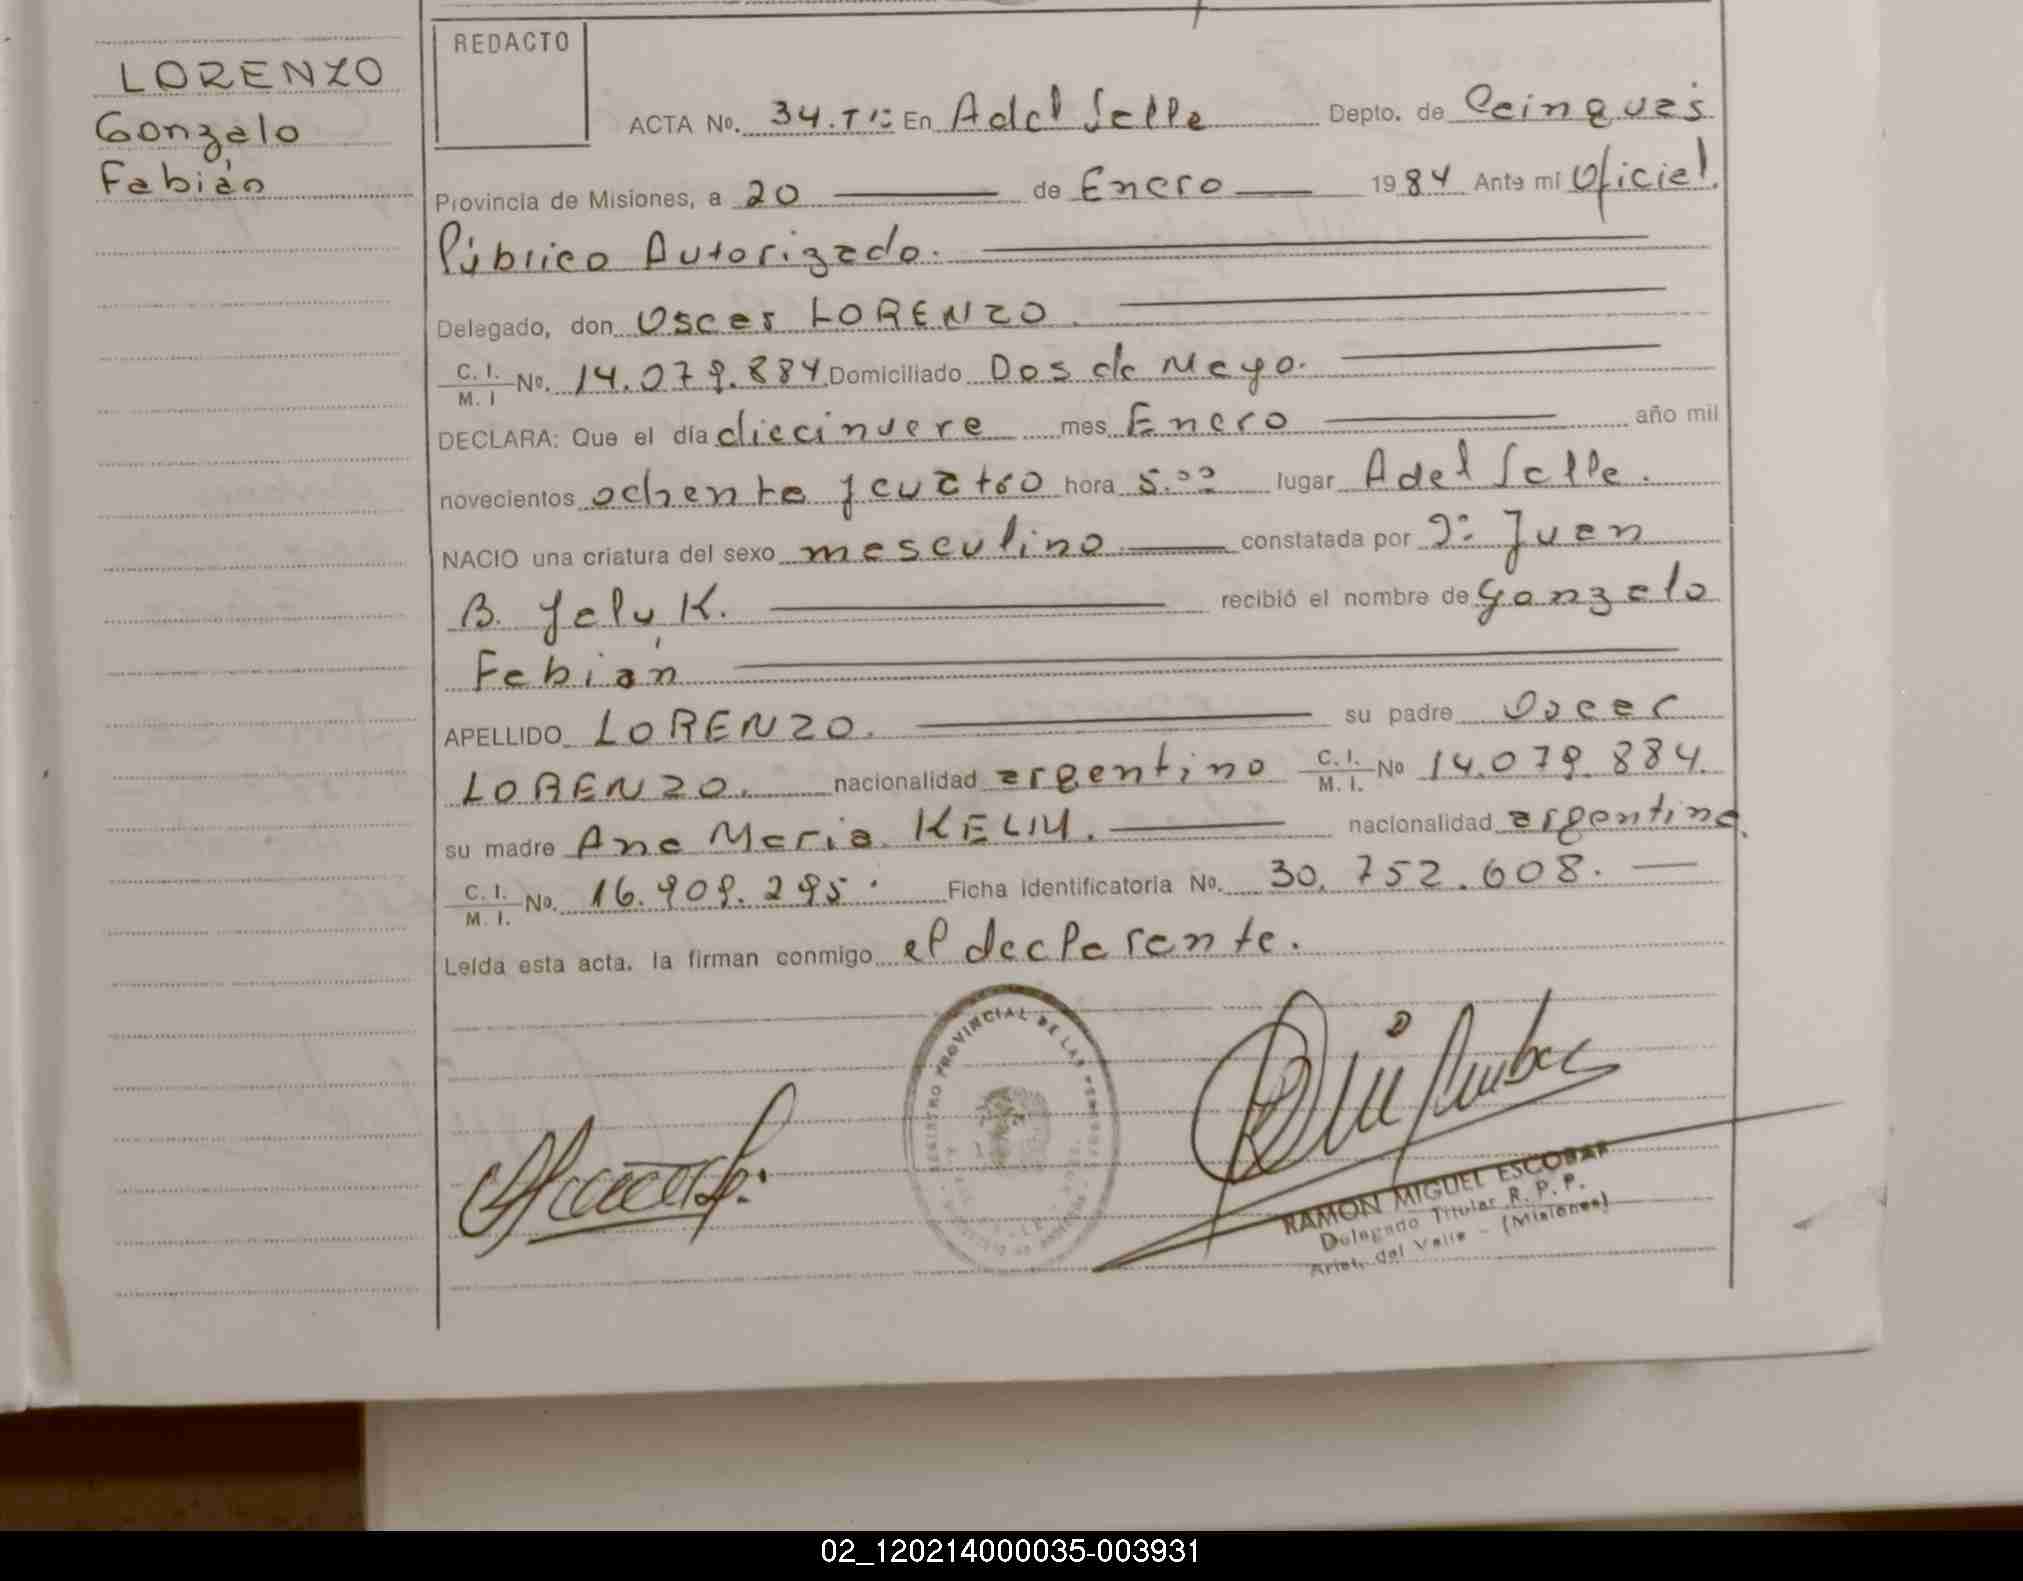 LORENZO
Gonzalo
Fabián
REDACTO
ACTA No. 34. Tº I: En A del Valle Depto. de Cainguás
Provincia de Misiones, a 20 de Enero 1984 Ante mí Oficial
Público Autorizado.
Delegado, don Oscar LORENZO.
C. I. / M. I No. 14.079.884 Domiciliado Dos de Mayo.
DECLARA: Que el día diecinueve mes Enero año mil
novecientos ochenta y cuatro hora 5.00 lugar A del Valle.
NACIO una criatura del sexo masculino constatada por Juan
B. K. recibió el nombre de Gonzalo
Fabián
APELLIDO LORENZO. su padre Oscar
LORENZO. nacionalidad argentino C. I. / M. I. No 14.079.884.
su madre Ana Maria nacionalidad argentina.
C. I. / M. I. No. 16.909.295. Ficha identificatoria No. 30.752.608.
Leída esta acta, la firman conmigo el declarante.
REGISTRO PROVINCIAL DE LAS PERSONAS
RAMON MIGUEL ESCOBAR
Delegado Titular R. P. P.
Arist. del Valle - (Misiones)
02_120214000035-003931